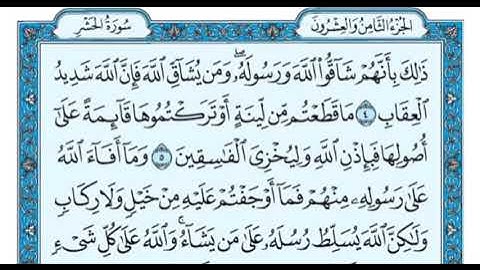 الجزء الثامن والعشرون
سورة الحشر
ذَٰلِكَ بِأَنَّهُمْ شَاقُّوا۟ ٱللَّهَ وَرَسُولَهُۥ ۖ وَمَن يُشَآقِّ ٱللَّهَ فَإِنَّ ٱللَّهَ شَدِيدُ
ٱلْعِقَابِ ٤ مَا قَطَعْتُم مِّن لِّينَةٍ أَوْ تَرَكْتُمُوهَا قَآئِمَةً عَلَىٰٓ
أُصُولِهَا فَبِإِذْنِ ٱللَّهِ وَلِيُخْزِىَ ٱلْفَٰسِقِينَ ٥ وَمَآ أَفَآءَ ٱللَّهُ
عَلَىٰ رَسُولِهِۦ مِنْهُمْ فَمَآ أَوْجَفْتُمْ عَلَيْهِ مِنْ خَيْلٍ وَلَا رِكَابٍ
وَلَٰكِنَّ ٱللَّهَ يُسَلِّطُ رُسُلَهُۥ عَلَىٰ مَن يَشَآءُ ۚ وَٱللَّهُ عَلَىٰ كُلِّ شَىْءٍ